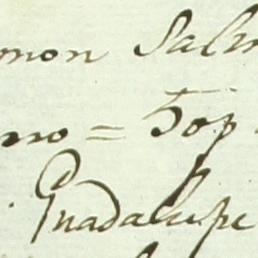 mon Salm
mo = Top
Guadalupe